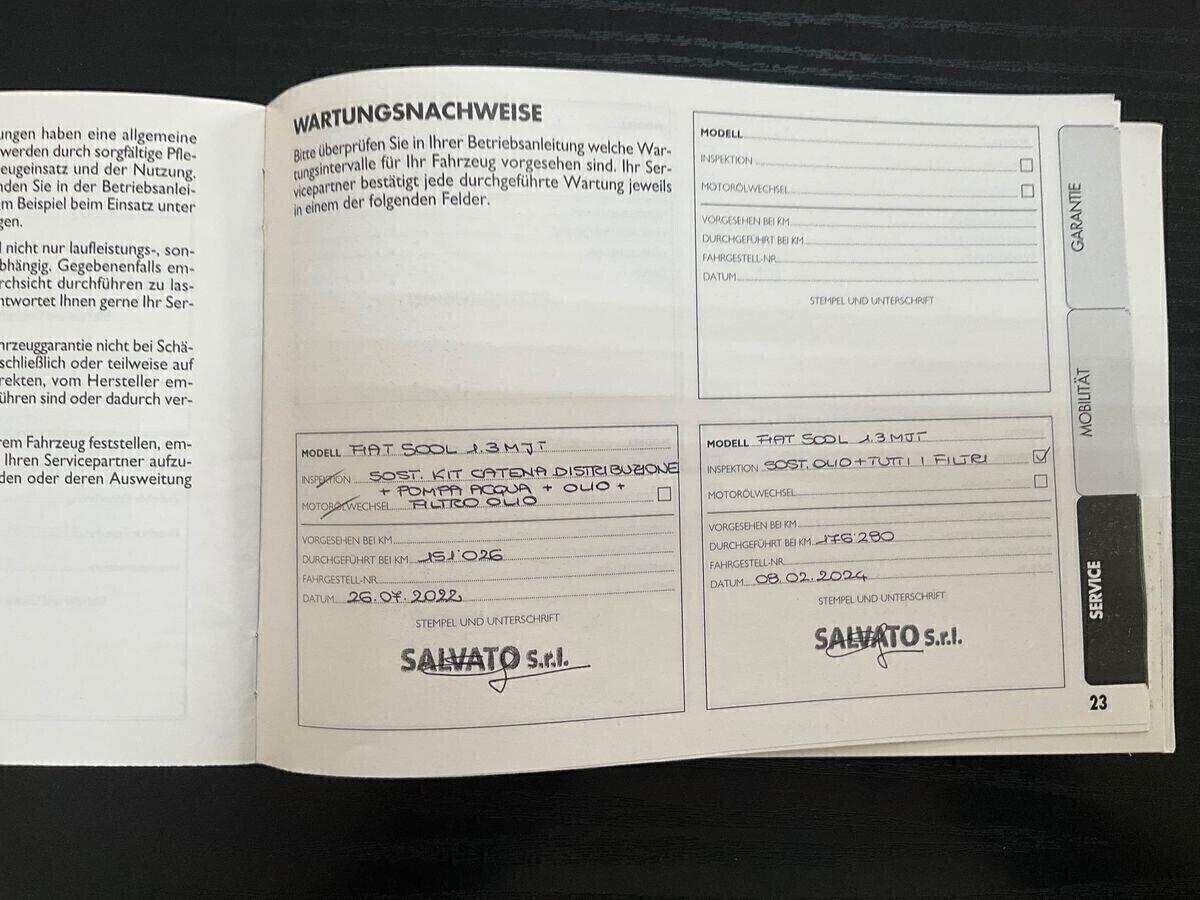 ungen haben eine allgemeine
werden durch sorgfältige Pfle-
zeugeinsatz und der Nutzung.
nden Sie in der Betriebsanlei-
m Beispiel beim Einsatz unter
gen.
l nicht nur laufleistungs-, son-
bhängig. Gegebenenfalls em-
rchsicht durchführen zu las-
ntwortet Ihnen gerne Ihr Ser-
hrzeuggarantie nicht bei Schä-
schließlich oder teilweise auf
rekten, vom Hersteller em-
ühren sind oder dadurch ver-
rem Fahrzeug feststellen, em-
Ihren Servicepartner aufzu-
den oder deren Ausweitung
WARTUNGSNACHWEISE
Bitte überprüfen Sie in Ihrer Betriebsanleitung welche War-
tungsintervalle für Ihr Fahrzeug vorgesehen sind. Ihr Ser-
vicepartner bestätigt jede durchgeführte Wartung jeweils
in einem der folgenden Felder.
MODELL
INSPEKTION
MOTORÖLWECHSEL
VORGESEHEN BEI KM
DURCHGEFÜHRT BEI KM
FAHRGESTELL-NR.
DATUM
STEMPEL UND UNTERSCHRIFT
MODELL FIAT 500L 1.3 MJT
INSPEKTION SOST. KIT CATENA DISTRIBUZIONE
+ POMPA ACQUA + OLIO +
MOTORÖLWECHSEL FILTRO OLIO
VORGESEHEN BEI KM
DURCHGEFÜHRT BEI KM 151'026
FAHRGESTELL-NR.
DATUM 26.07.2022
STEMPEL UND UNTERSCHRIFT
SALVATO S.r.l.
MODELL FIAT 500L 1.3 MJT
INSPEKTION SOST. OLIO + TUTTI I FILTRI
MOTORÖLWECHSEL
VORGESEHEN BEI KM
DURCHGEFÜHRT BEI KM 176'280
FAHRGESTELL-NR.
DATUM 08.02.2024
STEMPEL UND UNTERSCHRIFT
SALVATO S.r.l.
GARANTIE
MOBILITÄT
SERVICE
23